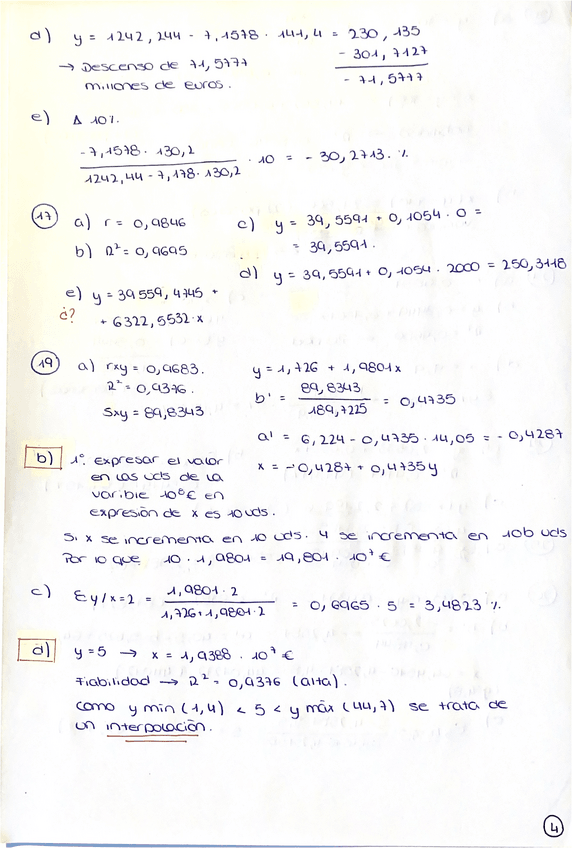 d) y = 1242,244 - 7,1578 · 141,4 = 230,135
- 301,7127
→ Descenso de 71,5777
- 71,5777
millones de euros.
e) Δ 10%
-7,1578 · 130,2
———————— · 10 = - 30,2713. %
1242,44 - 7,178 · 130,2
17 a) r = 0,9846
c) y = 39,5591 + 0,1054 · 0 =
= 39,5591.
b) R² = 0,9695
d) y = 39,5591 + 0,1054 · 2000 = 250,3118
e) y = 39559,4745 +
¿?
+ 6322,5532·x
19 a) rxy = 0,9683.
R² = 0,9376.
Sxy = 89,8343
y = 1,726 + 1,9801x
b' = 89,8343 / 189,7225 = 0,4735
a' = 6,224 - 0,4735 · 14,05 = - 0,4287
x = - 0,4287 + 0,4735y
b) 1º expresar el valor
en las uds de la
varible 10⁶€ en
expresión de x es 10 uds.
Si x se incrementa en 10 uds. y se incrementa en 10b uds
Por lo que 10 · 1,9801 = 19,801 · 10⁷ €
c) Ey/x=2 = 1,9801 · 2 / 1,726+1,9801·2 = 0,6965 · 5 = 3,4823 %
d) y = 5 → x = 1,9388 · 10⁷ €
Fiabilidad → R² = 0,9376 (alta).
Como y mín (1,4) < 5 < y máx (44,7) se trata de
un interpolación.
4